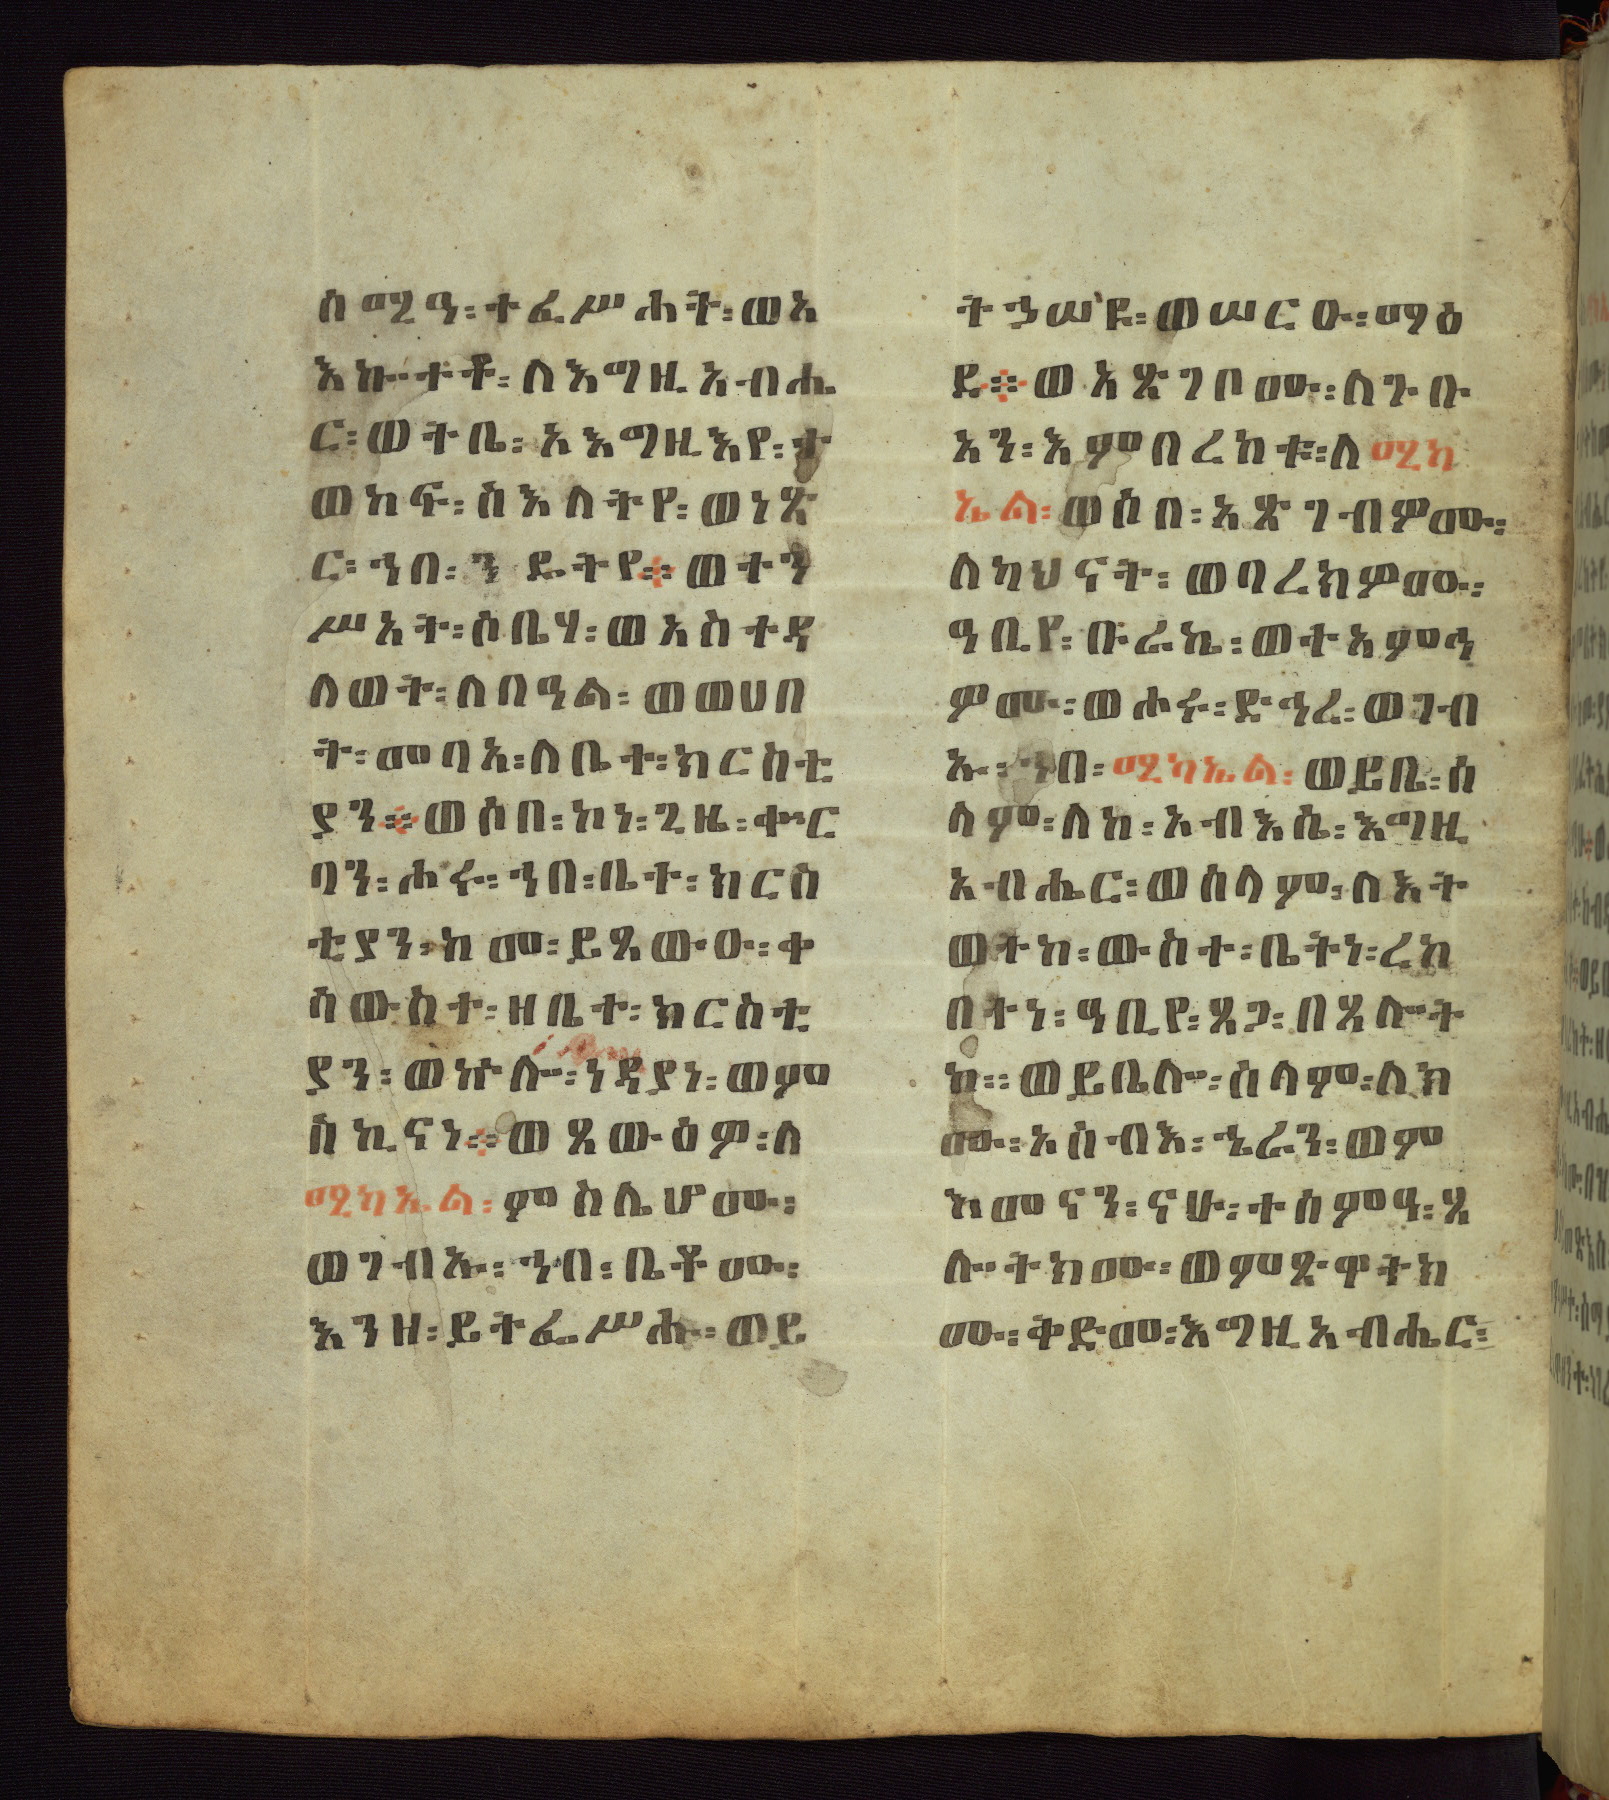 ሰሚዓ፡ተፈሥሐት፡ወአ
እኰተቶ፡ለእግዚአብሔ
ር፡ወትቤ፡አእግዚእየ፡ተ
ወከፍ፡ስእለትየ፡ወነጽ
ር፡ኀበ፡ንዴትየ፨ወተን
ሥአት፡ሶቤሃ፡ወአስተዳ
ለወት፡ለበዓል፡ወወሀበ
ት፡መባአ፡ለቤተ፡ክርስቲ
ያን፨ወሶበ፡ኮነ፡ጊዜ፡ቍር
ባን፡ሐሩ፡ኀበ፡ቤተ፡ክርስ
ቲያን፡ከመ፡ይጼውዑ፡ቀ
ሳውስተ፡ዘቤተ፡ክርስቲ
ያን፡ወኵሎ፡ነዳያነ፡ወም
ስኪናነ፨ወጸውዕዎ፡ለ
ሚካኤል፡ምስሌሆሙ፡
ወገብኡ፡ኀበ፡ቤቶሙ፡
እንዘ፡ይትፌሥሑ፡ወይ
ትኃሠዩ፡ወሠርዑ፡ማዕ
ደ፨ወአጽገቦሙ፡ለጉቡ
አን፡እምበረከቱ፡ለሚካ
ኤል፡ወሶበ፡አጽገብዎሙ፡
ለካህናት፡ወባረክዎሙ፡
ዓቢየ፡ቡራኬ፡ወተአምኀ
ዎሙ፡ወሐሩ፡ድኅረ፡ወገብ
ኡ፡ኀበ፡ሚካኤል፡ወይቤ፡ሰ
ላም፡ለከ፡አብእሴ፡እግዚ
አብሔር፡ወሰላም፡ለእት
ወትከ፡ውስተ፡ቤትነ፡ረከ
በተነ፡ዓቢየ፡ጸጋ፡በጸሎት
ከ፡፡ወይቤሎ፡ሰላም፡ለክ
ሙ፡አሰብእ፡ኄራን፡ወም
እመናን፡ናሁ፡ተሰምዓ፡ጸ
ሎትክሙ፡ወምጽዋትክ
ሙ፡ቅድመ፡እግዚአብሔር፡